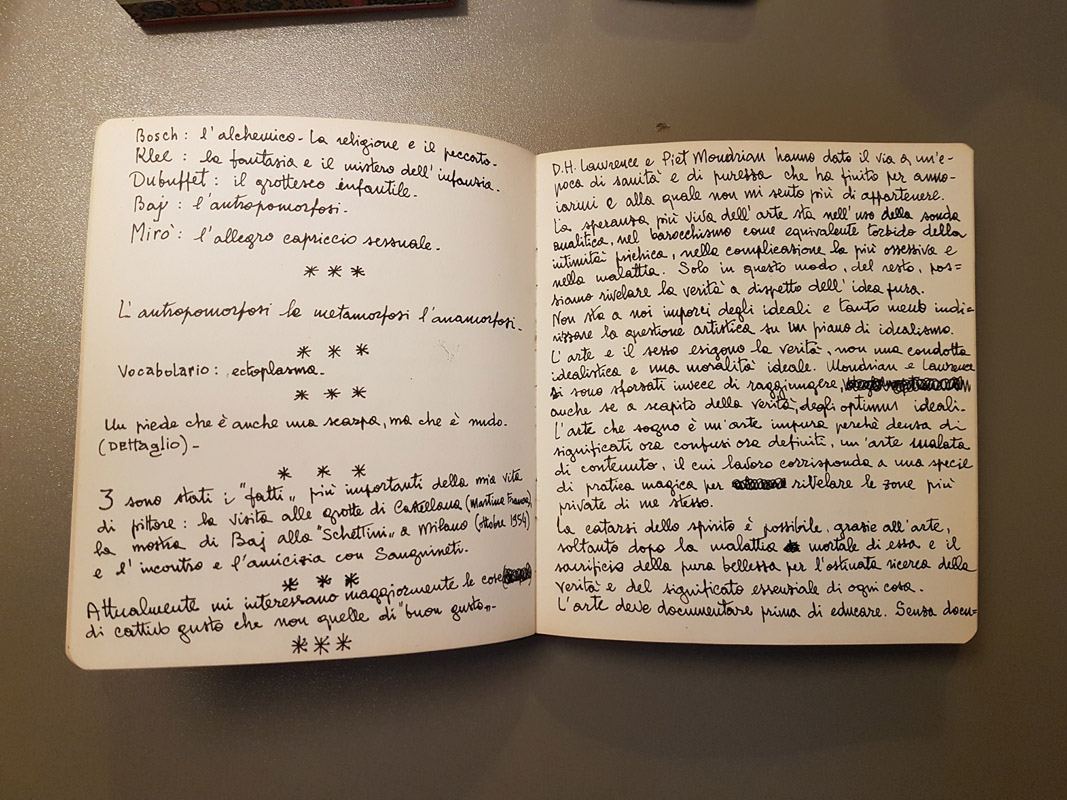 Bosch : l'alchemico - La religione e il peccato.
Klee : la fantasia e il mistero dell'infanzia.
Dubuffet : il grottesco infantile.
Baj : l'antropomorfosi.
Mirò : l'allegro capriccio sessuale.
* * *
L'antropomorfosi la metamorfosi l'anamorfosi.
* * *
Vocabolario : ectoplasma.
* * *
Un piede che è anche una scarpa, ma che è nudo.
(DETTaglio) -
* * *
3 sono stati i "fatti" più importanti della mia vita
di pittore : la visita alle grotte di Castellana (Martina Franca),
la mostra di Baj alla "Schettini" a Milano (ottobre 1954)
e l'incontro e l'amicizia con Sanguineti.
* * *
Attualmente mi interessano maggiormente le cose
di cattivo gusto che non quelle di "buon gusto".
* * *
D.H. Lawrence e Piet Mondrian hanno dato il via a un'e-
poca di sanità e di purezza che ha finito per anno-
iarmi e alla quale non mi sento più di appartenere.
La speranza più viva dell'arte sta nell'uso della sonda
analitica, nel barocchismo come equivalente torbido della
intimità psichica, nella complicazione la più ossessiva e
nella malattia. Solo in questo modo, del resto, pos=
siamo rivelare la verità a dispetto dell'idea pura.
Non sta a noi imporci degli ideali e tanto meno indi=
rizzare la questione artistica su un piano di idealismo.
L'arte e il sesso esigono la verità, non una condotta
idealistica e una moralità ideale. Mondrian e Lawrence
si sono sforzati invece di raggiungere,
anche se a scapito della verità, degli optimus ideali.
L'arte che sogno è un'arte impura perchè densa di
significati ora confusi ora definiti, un'arte malata
di contenuto, il cui lavoro corrisponda a una specie
di pratica magica per rivelare le zone più
private di me stesso.
La catarsi dello spirito è possibile, grazie all'arte,
soltanto dopo la malattia mortale di essa e il
sacrificio della pura bellezza per l'ostinata ricerca della
verità e del significato essenziale di ogni cosa.
L'arte deve documentare prima di educare. Senza docu=